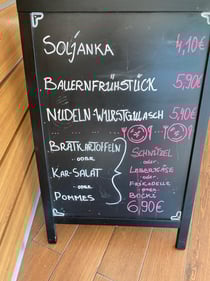 SOLJANKA 4,10€
BAUERNFRÜHSTÜCK 5,90€
NUDELN-WURSTGULASCH 5,40€
BRATKARTOFFELN
oder
KAR-SALAT
oder
POMMES
SCHNITZEL
oder
LEBERKÄSE
oder
FRIKADELLE
oder
6,90€